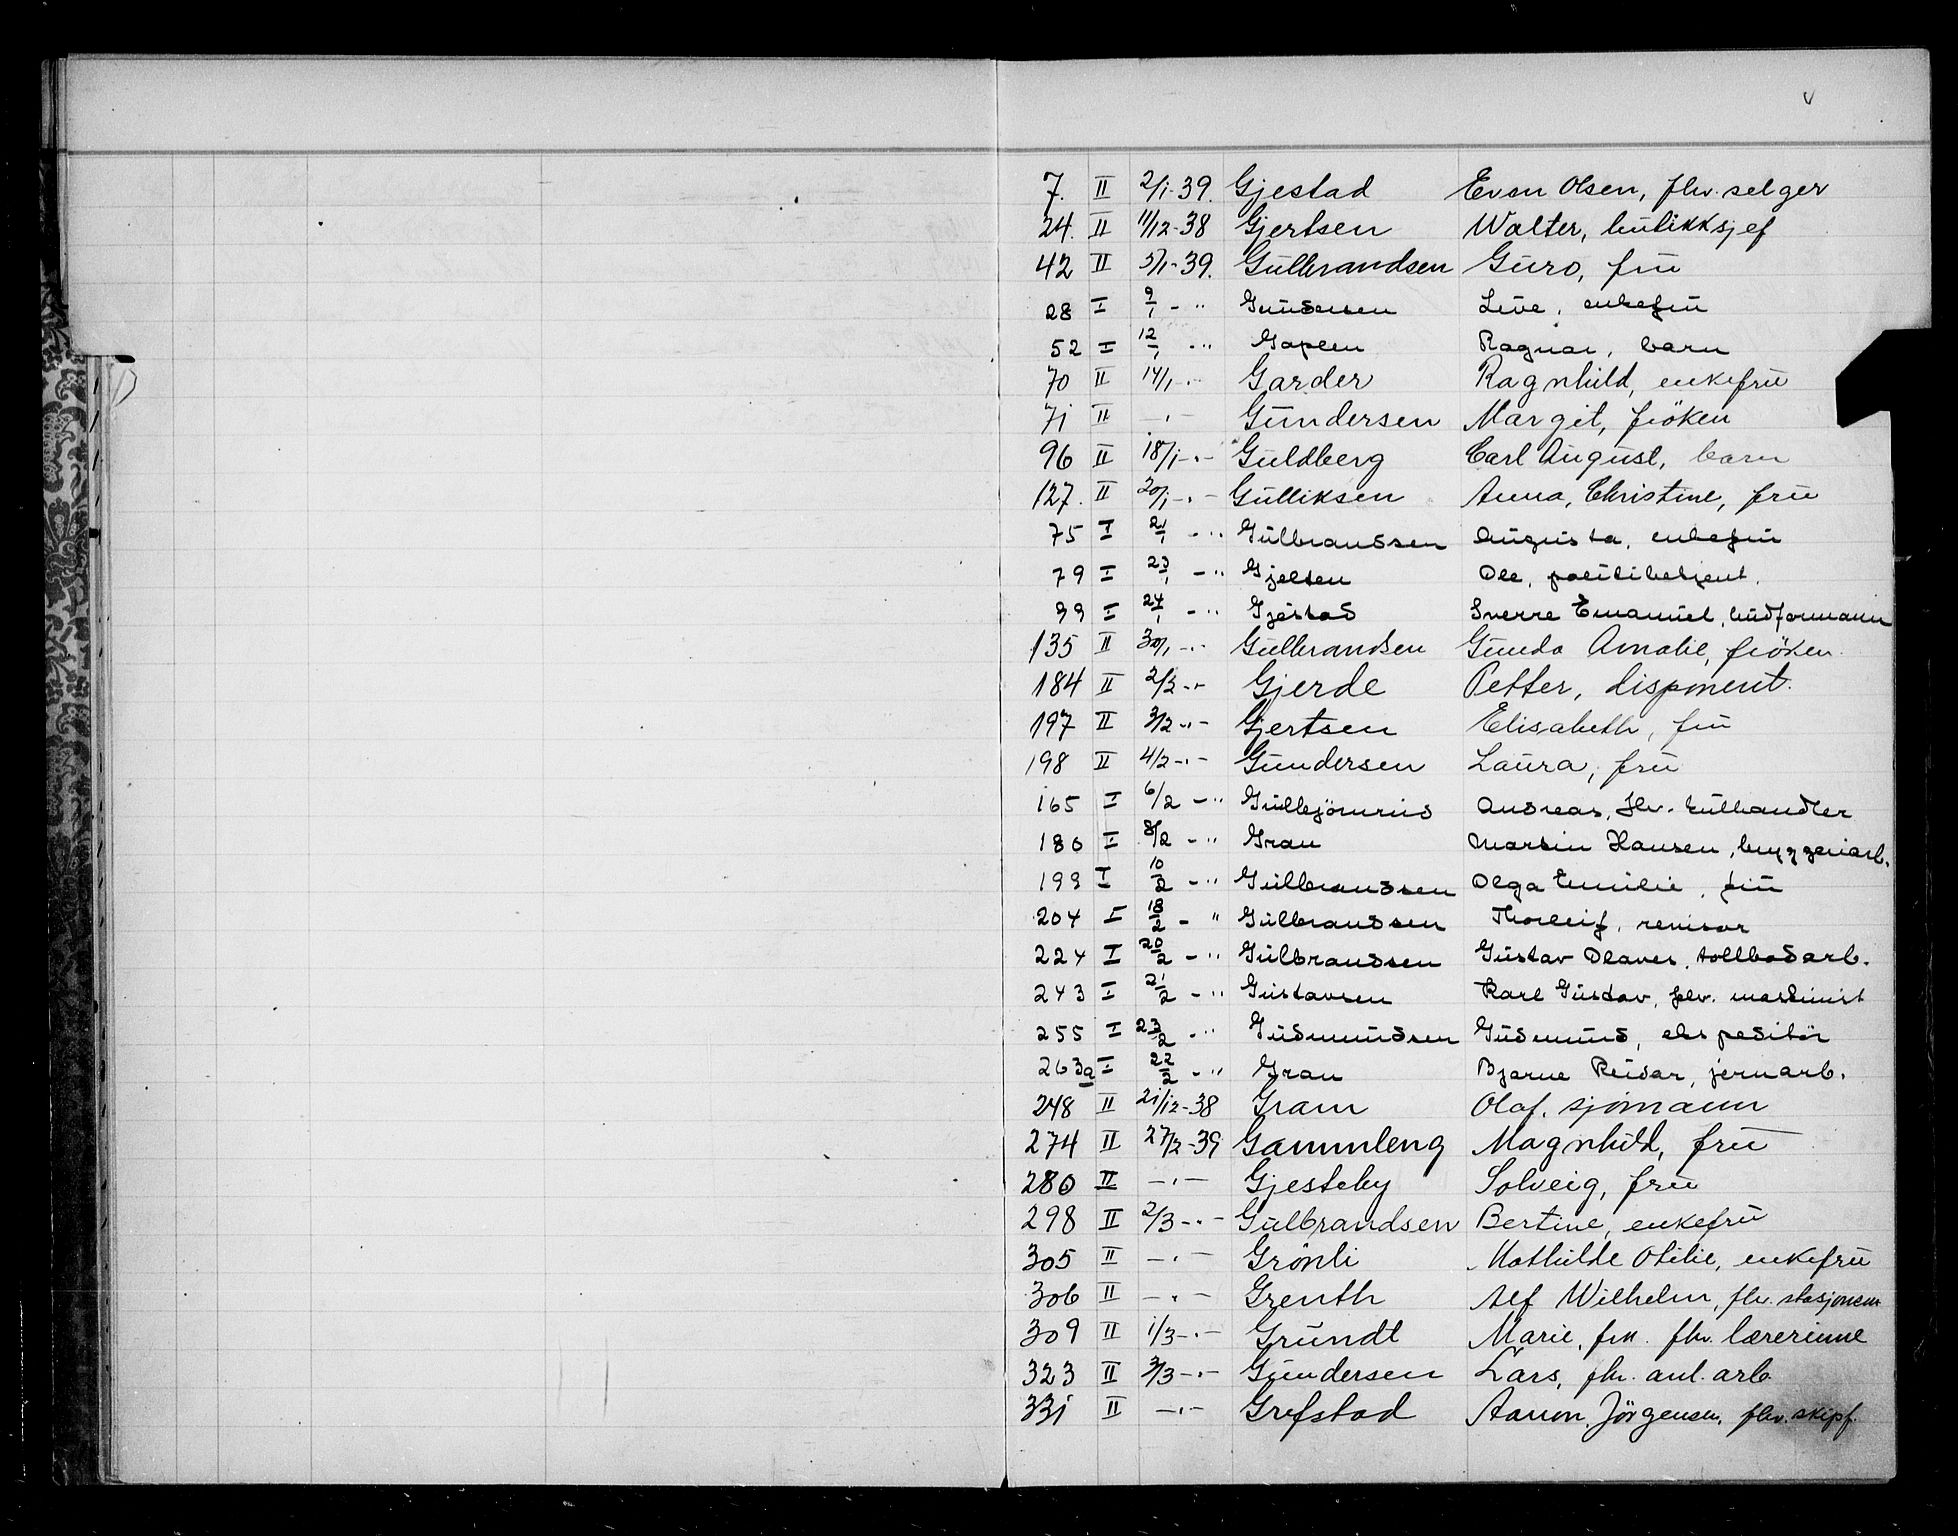 7. II 2/1-39. Gjestad Even Olsen, fhv. selger
24. II 11/12-38 Gjertsen Walter, butikksjef
42 II 5/1-39. Gulbrandsen Guro, frü
28 I 9/1 - " Gundersen enkefrü
52 I 12/1 - " Ragnar, barn
70 II 14/1 - " - Garder Ragnhild, enkefrü
71 II - " - Gündersen Margit, fröken
96 II 18/1 - " - Guldberg Carl August, barn
127. II 20/1 - " - Gulliksen Anna, Christine, frü
75 I 21/1 - " Gülbrandsen Augusta, enkefrü
79 I 23/1 - " Gjelsen Ole, politibetjent.
99 I 24/1 - " Gjestad Sverre Emanuel, budformann
135 II 30/1 - " - Gulbrandsen Gunda Amalie, fröken.
184 II 2/2 - " - Gjerde Petter, disponent.
197 II 3/2 - " - Gjertsen Elisabeth, frü
198 II 4/2 - " - Gündersen Laüra, frü
165 I 6/2 - " Gullbjörnrüd Andreas, fhv. kullhandler
180 I 8/2 - " Gran Martin Hansen, bryggeriarb.
199 I 10/2 - " Gülbrandsen Olga Emilie, frü
204 I 18/2 - " Gülbrandsen Thorleif, revisor
224 I 20/2 - " Gülbrandsen Güstav Olaves, tollbodarb.
243 I 21/2 - " Güstavsen Karl Güstav, fhv. maskinist
255 I 23/2 - " Güdmündsen Güdmünd, ekspeditör
263a I 22/2 - " Gran Bjarne Reidar, jernarb.
248 II 21/12-38 Gram Olaf, sjömann
274 II 27/2-39 Gammleng Magnhild, frü
280 II - " - Gjesteby Solveig, frü
298 II 2/3 - " - Gülbrandsen Bertine, enkefrü
305 II - " - Grönli Mathilde Otilie, enkefrü
306 II - " - Grenth Alf Wilhelm, fhv. stasjonsm
309 II 1/3 - " - Gründt Marie, frk. fhv. lærerinne
323 II 3/3 - " - Gündersen Lars, fhv. anl. arb.
331 II - " - Grefstad Aanon Jörgensen, fhv. skipf.